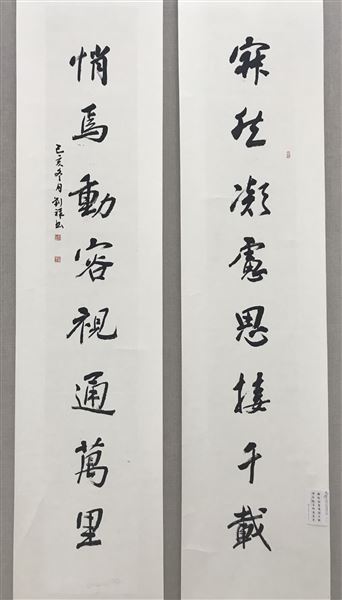 寂然凝慮思接千載
悄焉動容視通萬里
己亥冬月劉祥書